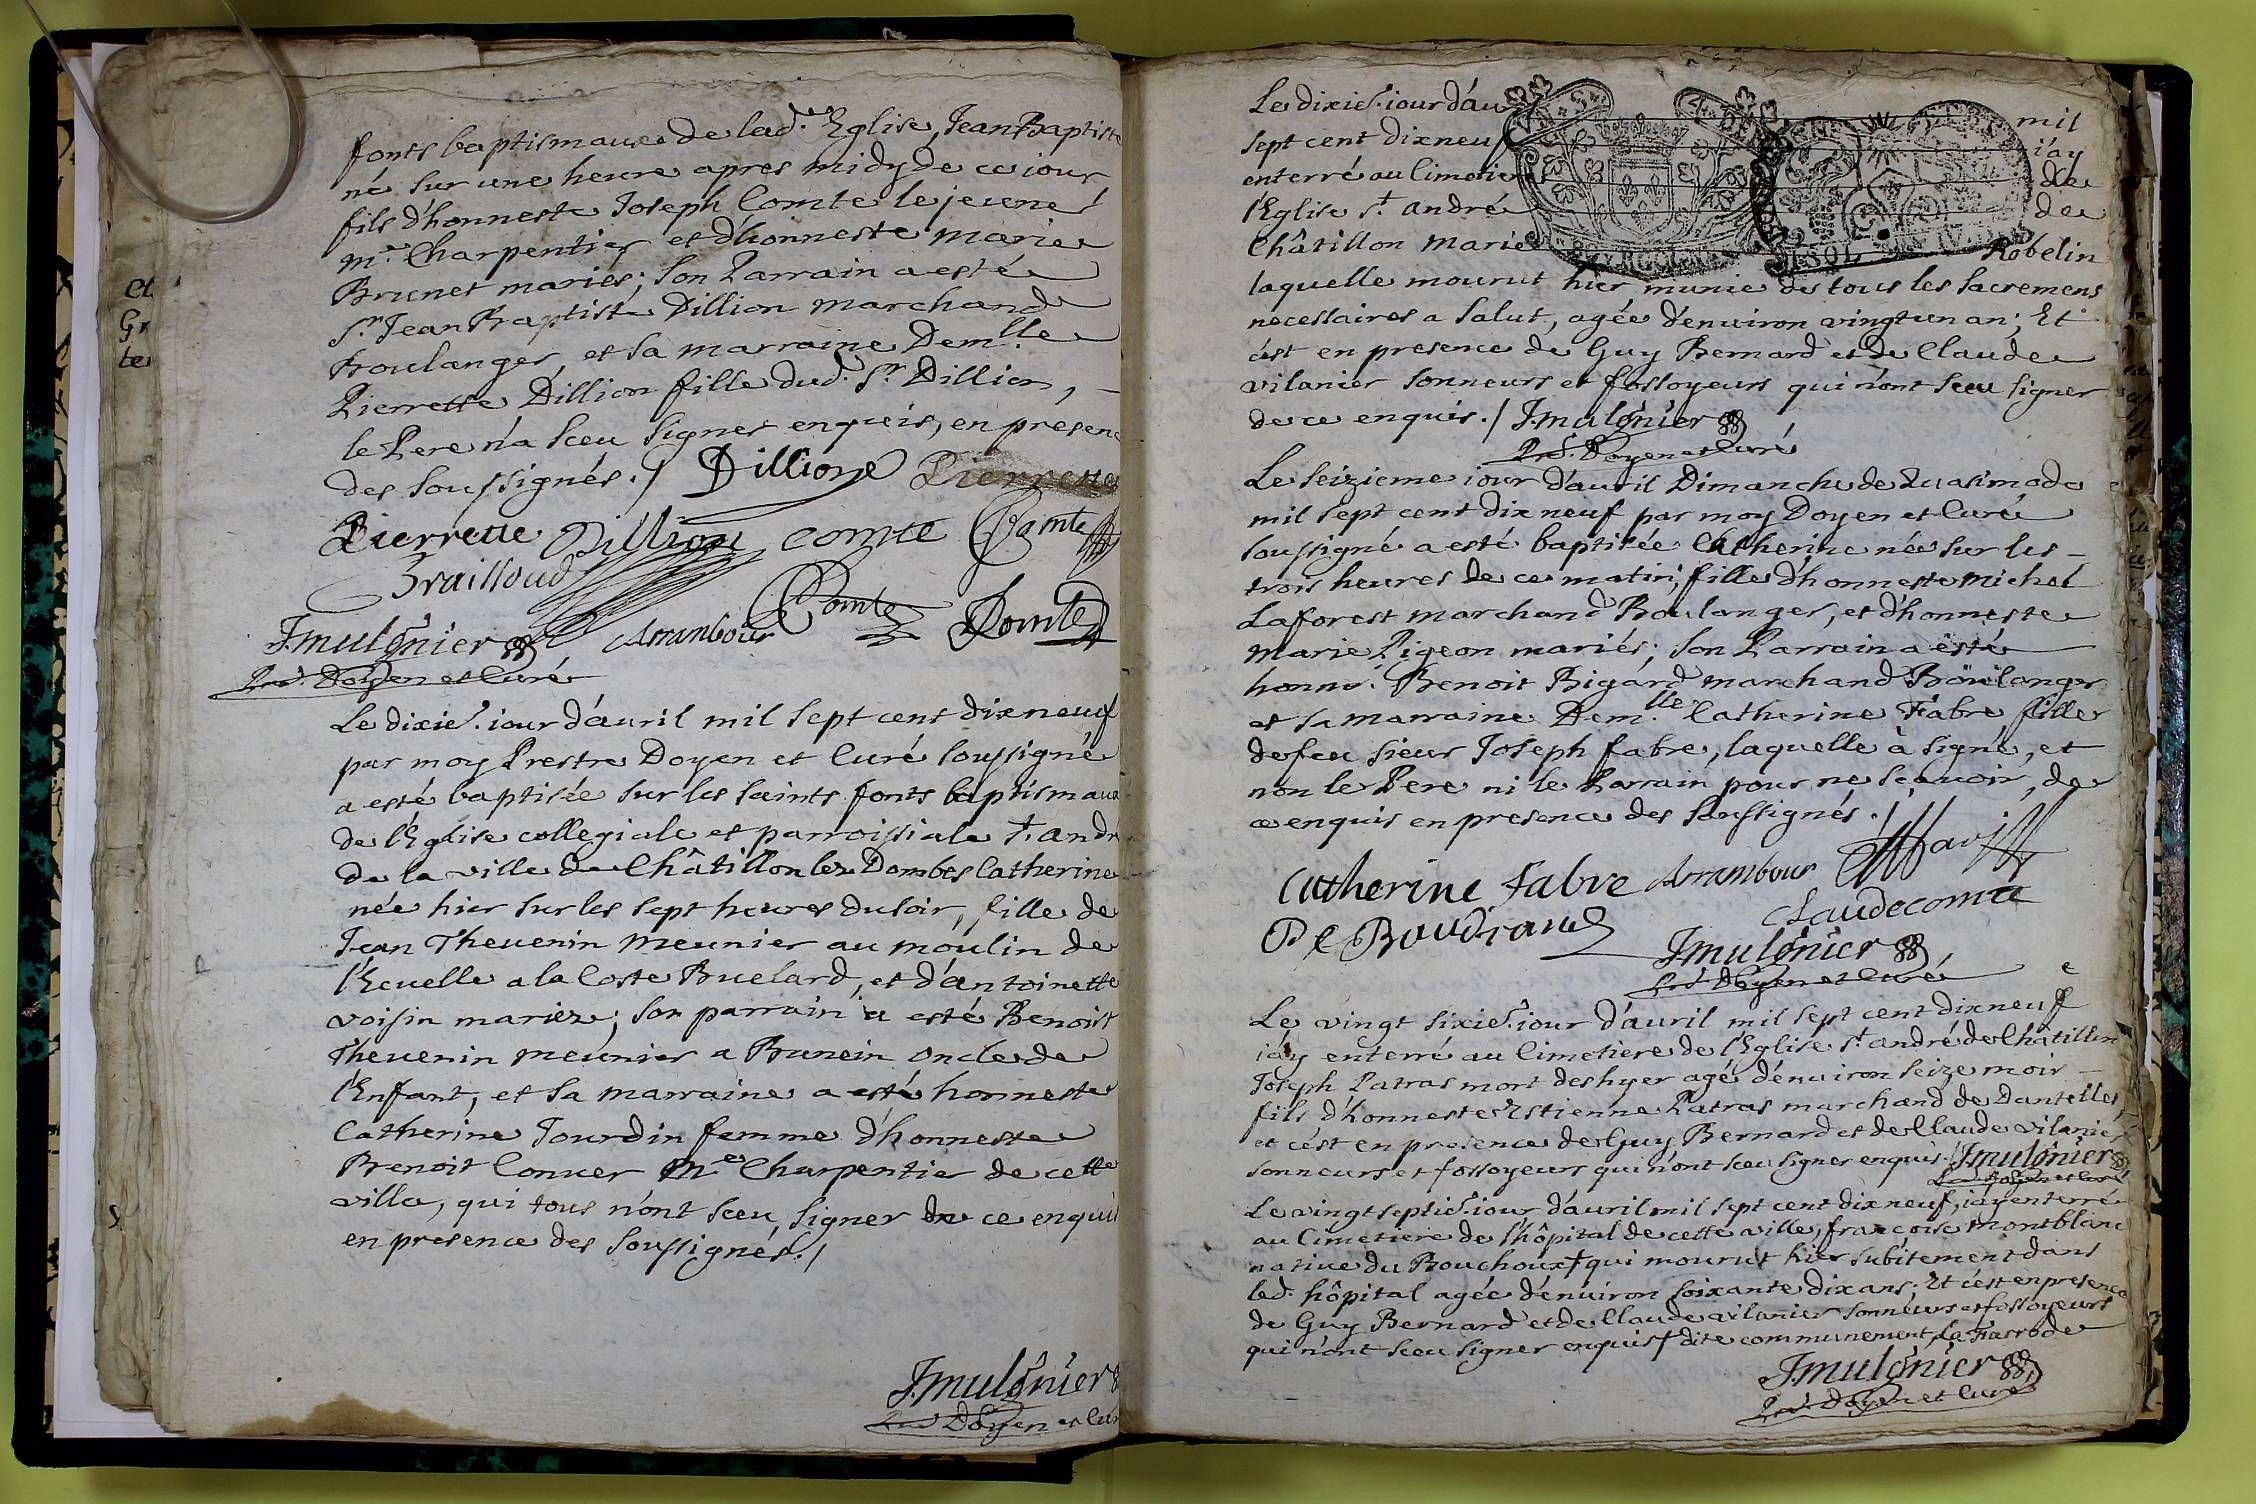 et
Gr
te
fonts baptismaux de lad. Eglise, Jean Baptiste
né sur une heure apres midy de ce iour,
fils d'honneste Joseph Comte le jeune
Mre Charpentier et d'honneste Marie
Brunet mariés; Son Parrain a esté
Sr Jean Baptiste Dillion marchand
Boulanger, et sa marraine Demlle
Pierrette Dillion fille dud. Sr Dillion,
le Pere n'a sceu signer enquis, en presence
des soussignés./ Dillion Pierrette
Pierrette Dillion comte Comte
Braissoud
Comte Comte
J. mulônier Arrambour
Prê. Doyen et Curé
Le dixie. iour d'auril mil sept cent dixneuf
par moy Prestre Doyen et Curé soussigné
a esté baptisée sur les saints fonts baptismaux
de l'Eglise collegiale et parroissiale St. andré
de la ville de Châtillon lez Dombes Catherine
née hier sur les sept heures du soir, fille de
Jean Theuenin meunier au moulin de
l'Ecuelle a la Coste Buelard, et d'antoinette
voisin mariez; son parrain a esté Benoist
Theuenin meunier a Brunein oncle de
l'Enfant, et sa marraine a esté honneste
Catherine Jourdin femme d'honneste
Benoit Conuer Mre Charpentier de cette
ville, qui tous n'ont sceu signer de ce enquis
en presence des soussignés./
J. mulônier
Prê. Doyen et Curé
Le dixie. iour d'au mil
sept cent dixneuf i'ay
enterré au Cimetiere de
l'Eglise St. andré de
Châtillon Marie Robelin
laquelle mourut hier munie de tous les sacremens
necessaires a salut, agée d'enuiron vingt un an; Et
c'est en presence de Guy Bernard et de Claude
vilanier sonneurs et fossoyeurs qui n'ont sceu signer
de ce enquis./ J. mulônier
Prê. Doyen et Curé
Le seizieme iour d'auril Dimanche de Quasimodo
mil sept cent dix neuf par moy Doyen et Curé
soussigné a esté baptisée Catherine née sur les
trois heures de ce matin, fille d'honneste michel
Laforest marchand Boulanger, et d'honneste
marie Pigeon mariés; son Parrain a esté
honne. Benoit Bigard marchand Boülanger
et sa marraine Demlle. Catherine Fabre fille
de feu sieur Joseph fabre, laquelle à signé, et
non le Pere ni le Parrain pour ne sçauoir, de
ce enquis en presence des soussignés./
Catherine Fabre Arrambour
De Boudrand Claude comte
J. mulônier
Prê. Doyen et Curé
Le vingt sixie. iour d'auril mil sept cent dixneuf
i'ay enterré au Cimetiere de l'Eglise St. andré de Châtillon
Joseph Patras mort des hyer agé d'enuiron seize mois
fils d'honneste Estienne Patras marchand de Dantelles,
et c'est en presence de Guy Bernard et de Claude vilanier
sonneurs et fossoyeurs qui n'ont sceu signer enquis. J. mulônier
Prê. Doyen et Curé
Le vingt septie. iour d'auril mil sept cent dix neuf, i'ay enterré
au Cimetiere de l'hôpital de cette ville, françoise montblanc
natiue du Bouchoux + qui mourut hier subitement dans
led. hôpital agée d'enuiron soixante dix ans; Et c'est en presence
de Guy Bernard et de Claude vilanier sonneurs et fossoyeurs
qui n'ont sceu signer enquis + dite communement La Farrode
J. mulônier
Prê. Doyen et Curé